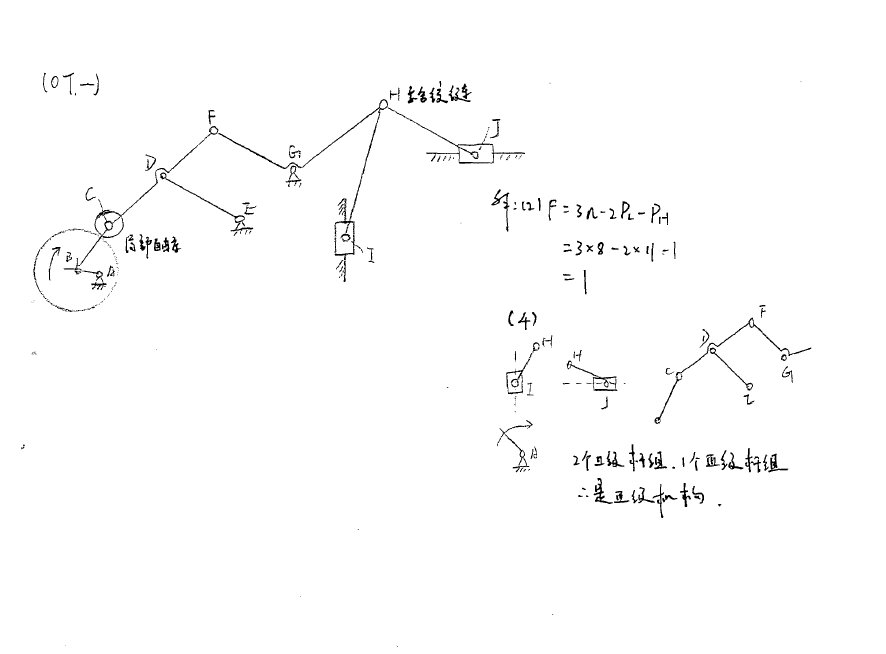 (0T.一)
F
H 复合铰链
J
D
G
C
E
局部自由度
B
A
I
解:(2) F = 3n - 2PL - PH
= 3×8 - 2×11 - 1
= 1
(4)
H
I
H
J
A
F
D
C
G
2个Ⅱ级杆组,1个Ⅲ级杆组
∴是Ⅲ级机构.